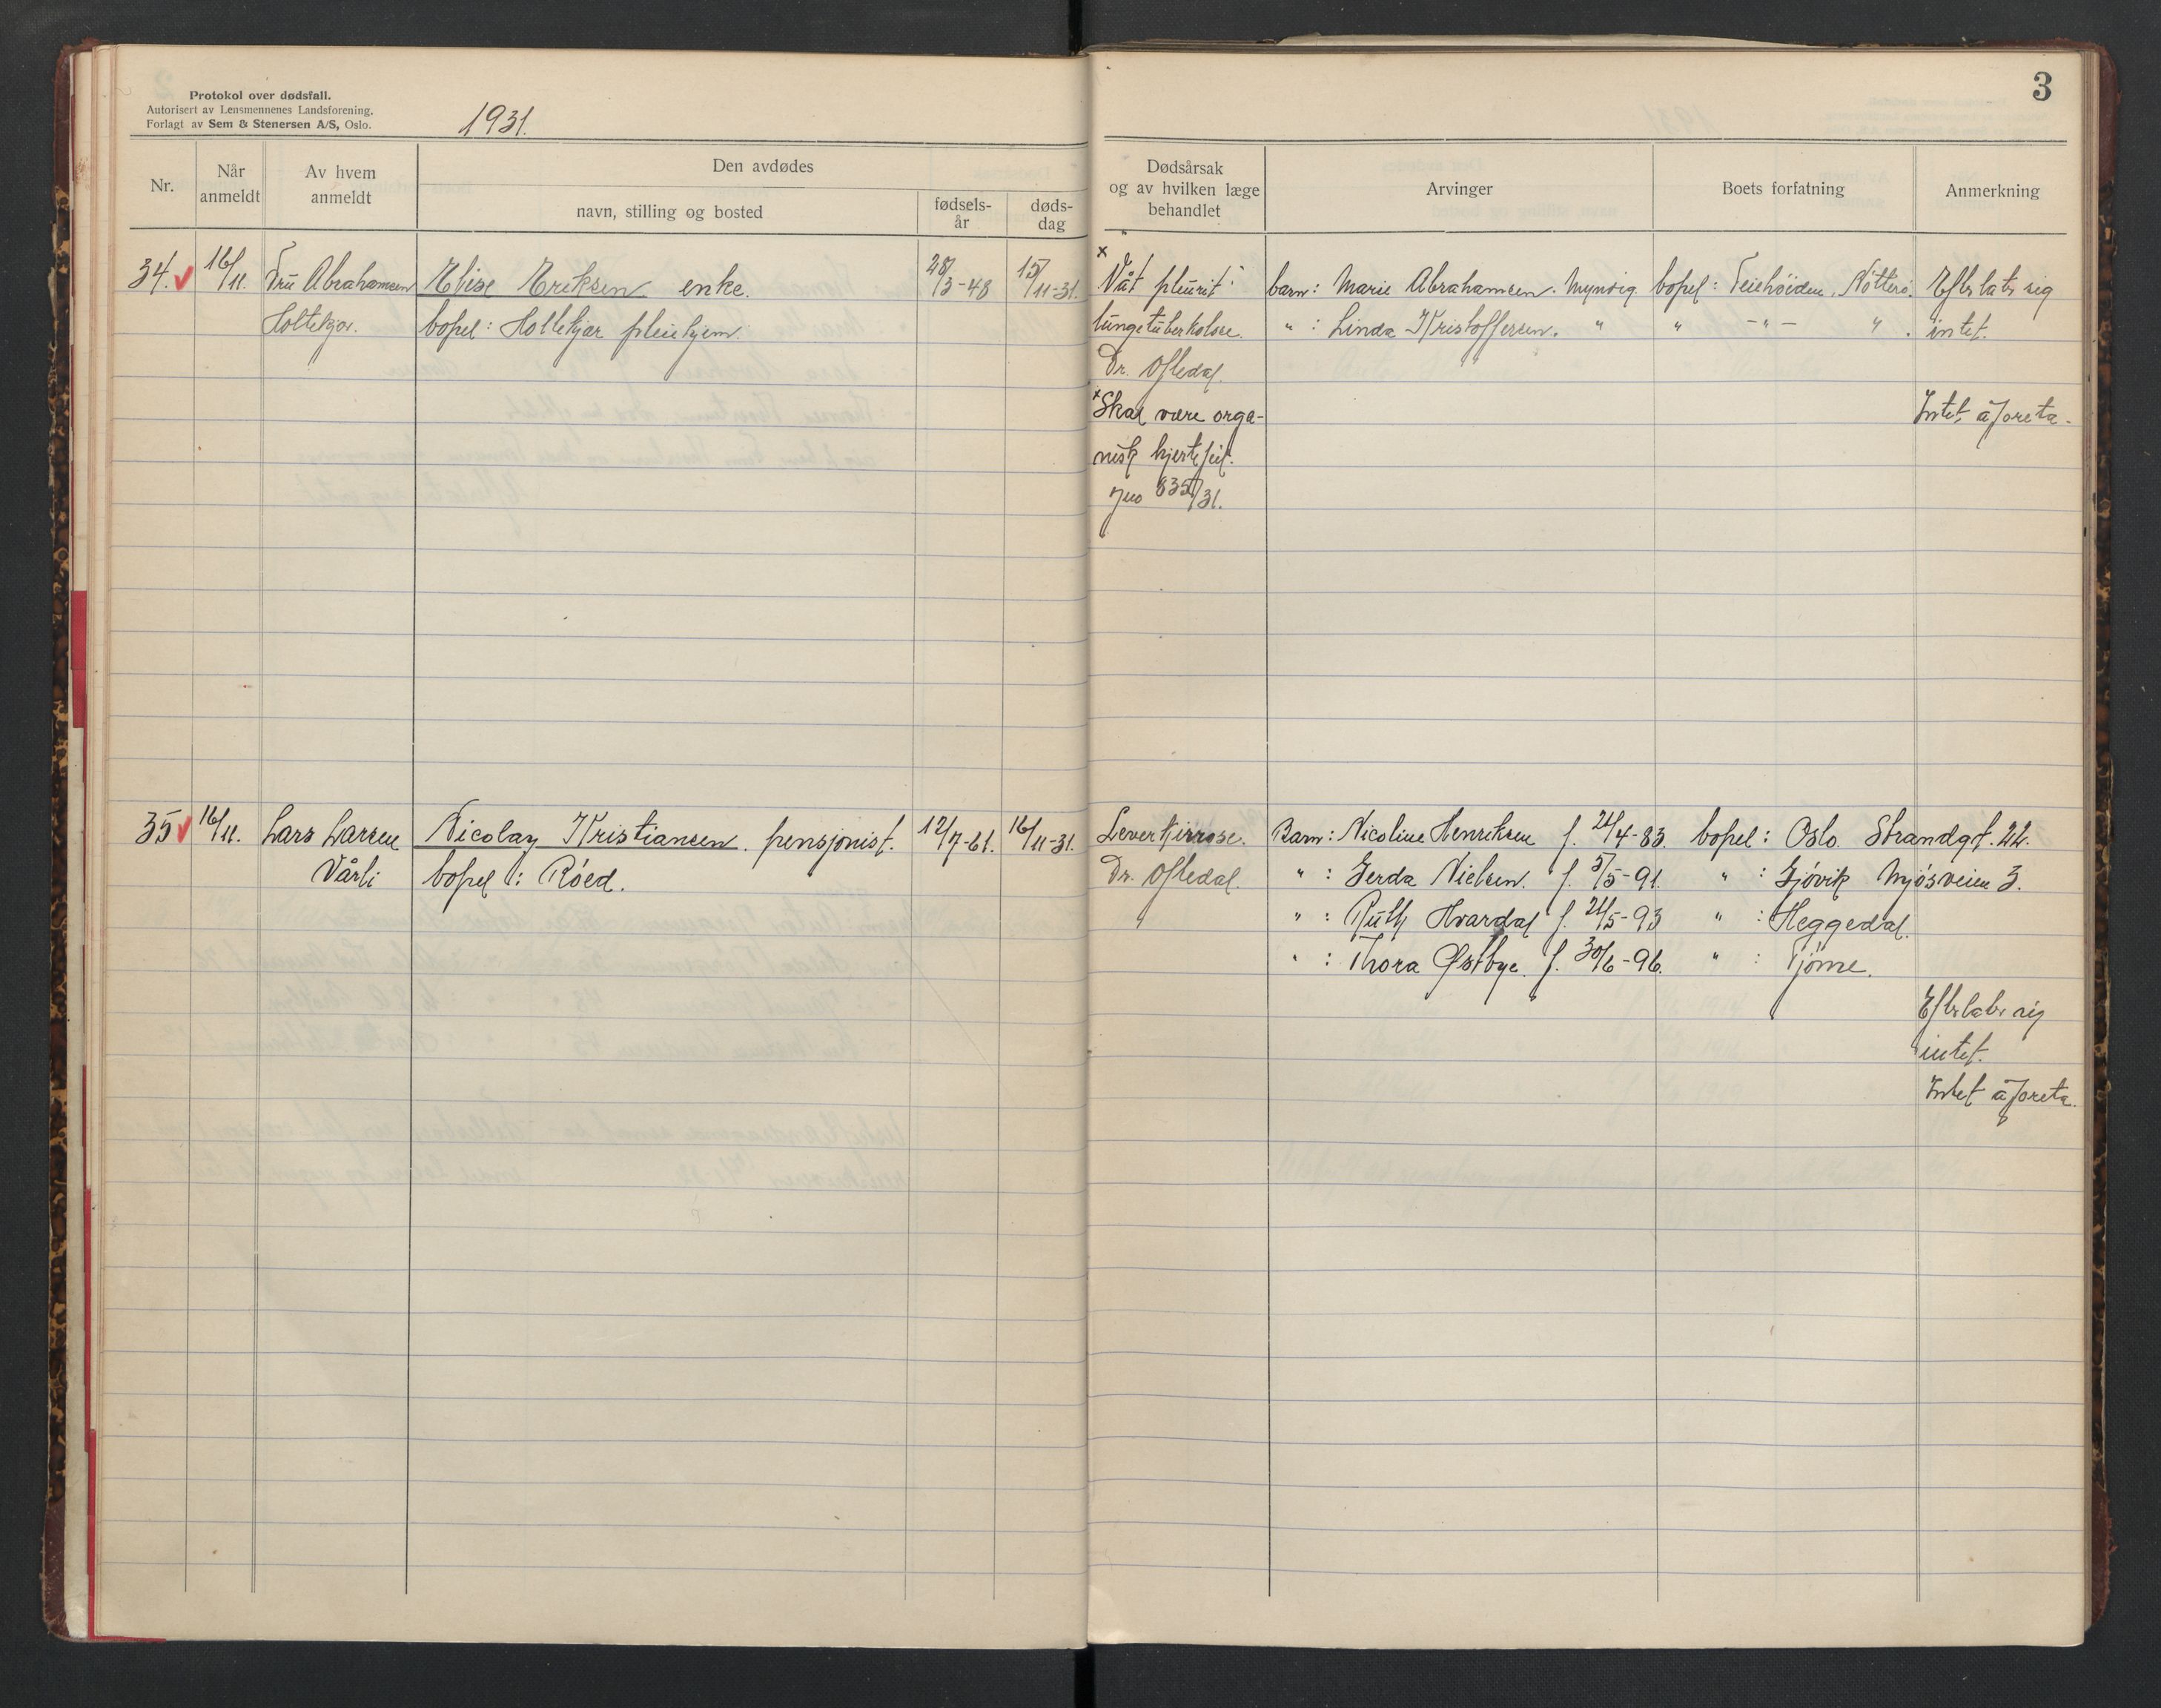 Protokol over dødsfall.
Autorisert av Lensmennenes Landsforening.
Forlagt av Sem & Stenersen A/S, Oslo.
1931.
3
Nr.
Når anmeldt
Av hvem anmeldt
Den avdødes
navn, stilling og bosted
fødsels-år
døds-dag
Dødsårsak og av hvilken læge behandlet
Arvinger
Boets forfatning
Anmerkning
34. 16/11. Fru Abrahamsen Elise Eriksen enke. 28/3-48 15/11-31. x Våt pleurit barn: Marie Abrahamsen. Myndig bopel: Teiehöiden, Nötterö. Efterlater sig
Holtekjær. bopel: Holtekjær pleiehjem. lungetuberkolose. " : Linda Kristoffersen. " " -"- " . intet.
Dr. Oftedal.
x Skal være orga- Intet å foreta.
nisk hjertefeil.
Jno 835/31.
35 16/11. Lars Larsen Nicolay Kristiansen. pensjonist. 12/7-61. 16/11-31. Levercirrose. Barn: Nicoline Henriksen f. 24/4-83. bopel: Oslo. Strandgt. 22.
Vårli bopel: Röed. Dr. Oftedal. " : Gerda Nielsen. f. 5/5-91. " : Gjövik Mjösveien 3.
" : Ruth Hvardal f. 24/5-93 " : Heggedal.
" : Thora Østbye. f. 30/6-96. " : Tjöme.
Efterlater sig
intet.
Intet å foreta.